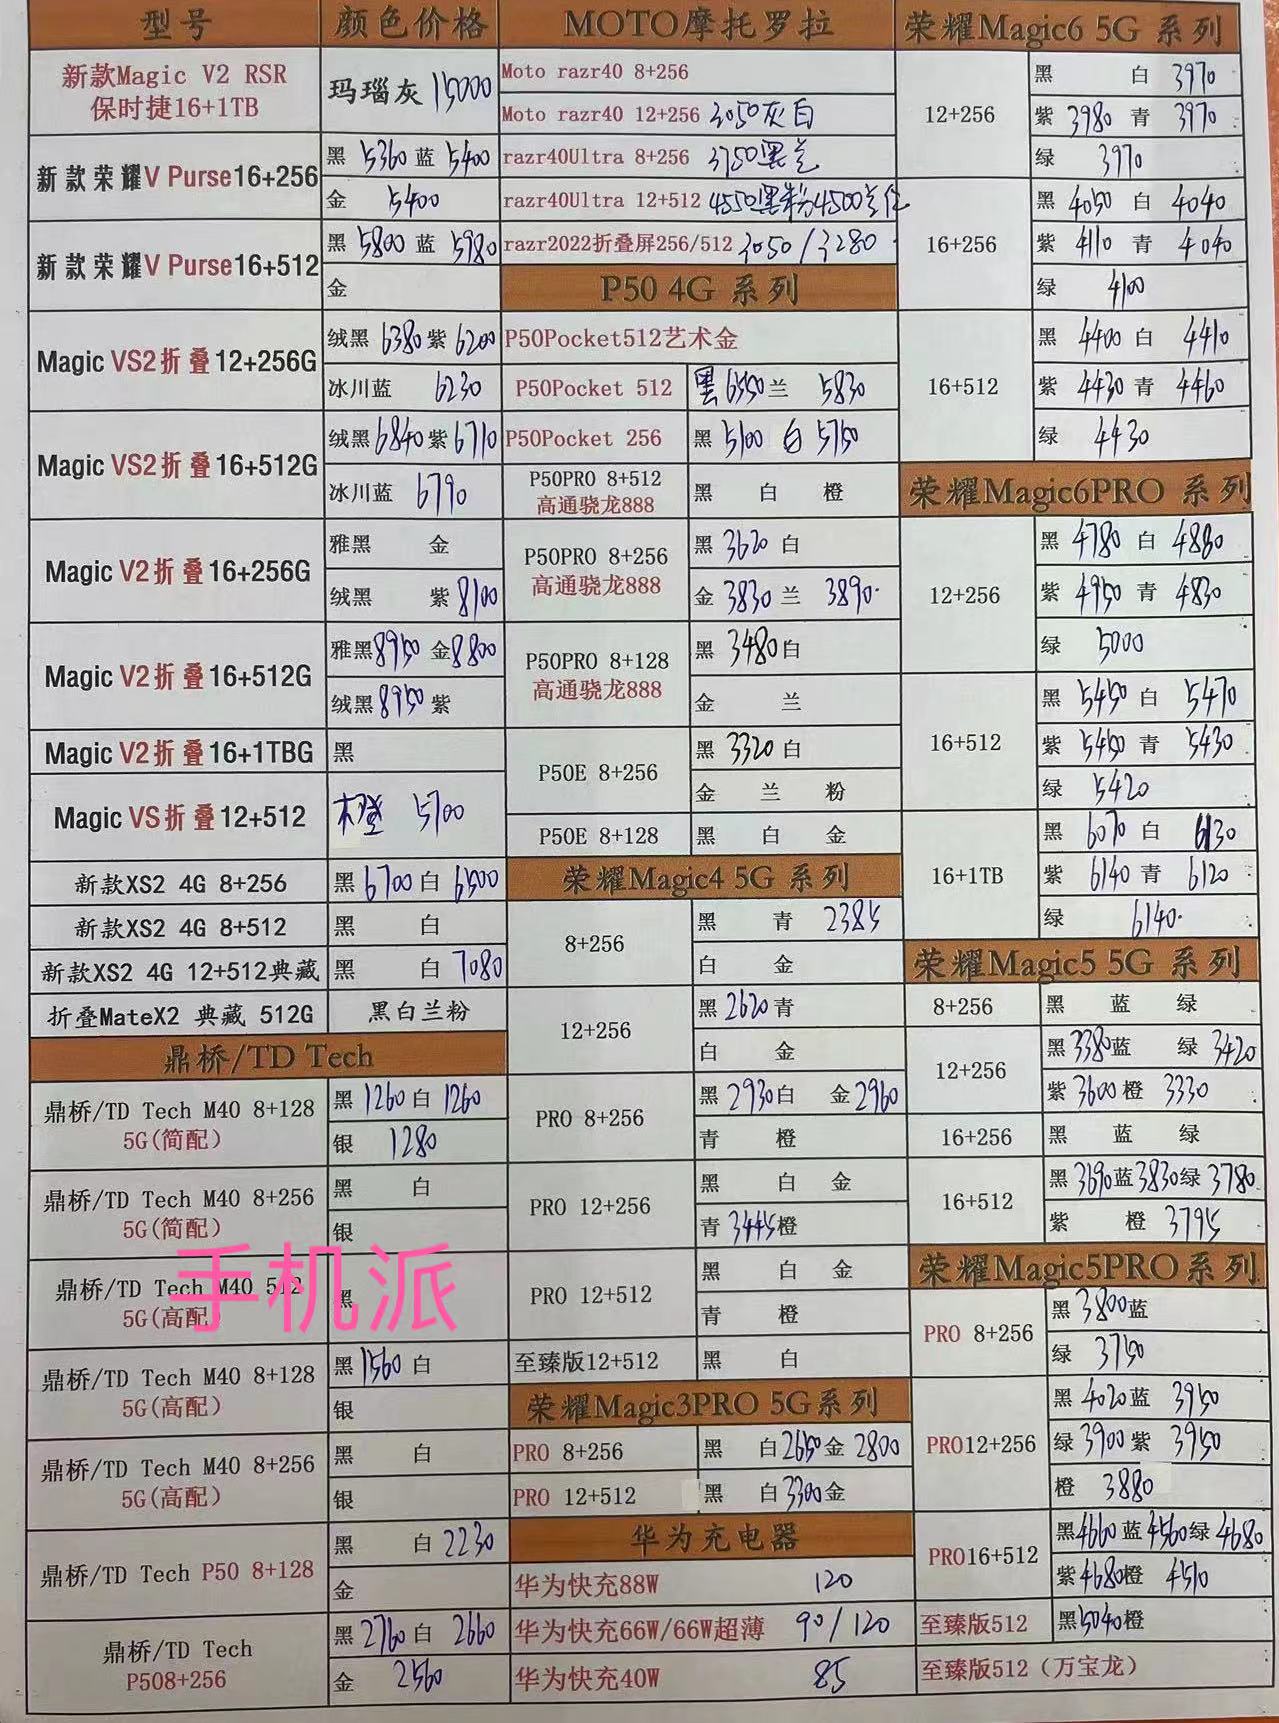 型号 颜色价格
新款Magic V2 RSR
保时捷16+1TB
玛瑙灰 15000
新款荣耀V Purse16+256
黑 5360 蓝 5400
金 5400
新款荣耀V Purse16+512
黑 5800 蓝 5980
金
Magic VS2折叠12+256G
绒黑 6380 紫 6200
冰川蓝 6230
Magic VS2折叠16+512G
绒黑 6840 紫 6710
冰川蓝 6790
Magic V2折叠16+256G
雅黑 金
绒黑 紫 8100
Magic V2折叠16+512G
雅黑 8950 金 8800
绒黑 8950 紫
Magic V2折叠16+1TBG
黑
Magic VS折叠12+512
橙 5700
新款XS2 4G 8+256
黑 6700 白 6500
新款XS2 4G 8+512
黑 白
新款XS2 4G 12+512典藏
黑 白 7080
折叠MateX2 典藏 512G
黑白兰粉
鼎桥/TD Tech
鼎桥/TD Tech M40 8+128
5G(简配)
黑 1260 白 1260
银 1280
鼎桥/TD Tech M40 8+256
5G(简配)
黑 白
银
鼎桥/TD Tech M40 512
5G(高配)
黑
手机派
鼎桥/TD Tech M40 8+128
5G(高配)
黑 1560 白
银
鼎桥/TD Tech M40 8+256
5G(高配)
黑 白
银
鼎桥/TD Tech P50 8+128
黑 白 2230
金
鼎桥/TD Tech
P508+256
黑 2760 白 2660
金 2560
MOTO摩托罗拉
Moto razr40 8+256
Moto razr40 12+256 3050灰白
razr40Ultra 8+256 3750黑兰
razr40Ultra 12+512 4550黑粉4500兰
razr2022折叠屏256/512 3050/3280
P50 4G 系列
P50Pocket512艺术金
P50Pocket 512
黑 6550 兰 5830
P50Pocket 256
黑 5100 白 5750
P50PRO 8+512
高通骁龙888
黑 白 橙
P50PRO 8+256
高通骁龙888
黑 3620 白
金 3830 兰 3890
P50PRO 8+128
高通骁龙888
黑 3480 白
金 兰
P50E 8+256
黑 3320 白
金 兰 粉
P50E 8+128
黑 白 金
荣耀Magic4 5G 系列
8+256
黑 青 2385
白 金
12+256
黑 2620 青
白 金
PRO 8+256
黑 2930 白 金 2960
青 橙
PRO 12+256
黑 白 金
青 3445 橙
PRO 12+512
黑 白 金
青 橙
至臻版12+512
黑 白
荣耀Magic3PRO 5G系列
PRO 8+256
黑 白 2650 金 2800
PRO 12+512
黑 白 3300 金
华为充电器
华为快充88W 120
华为快充66W/66W超薄 90/120
华为快充40W 85
荣耀Magic6 5G 系列
12+256
黑 白 3970
紫 3980 青 3970
绿 3970
16+256
黑 4050 白 4040
紫 4110 青 4040
绿 4100
16+512
黑 4400 白 4410
紫 4430 青 4460
绿 4430
荣耀Magic6PRO 系列
12+256
黑 4780 白 4880
紫 4950 青 4830
绿 5000
16+512
黑 5450 白 5470
紫 5450 青 5430
绿 5420
16+1TB
黑 6070 白 6130
紫 6140 青 6120
绿 6140
荣耀Magic5 5G 系列
8+256
黑 蓝 绿
12+256
黑 3380 蓝 绿 3420
紫 3600 橙 3330
16+256
黑 蓝 绿
16+512
黑 3690 蓝 3830 绿 3780
紫 橙 3795
荣耀Magic5PRO 系列
PRO 8+256
黑 3800 蓝
绿 3750
PRO12+256
黑 4020 蓝 3950
绿 3900 紫 3950
橙 3880
PRO16+512
黑 4660 蓝 4560 绿 4680
紫 4680 橙 4510
至臻版512
黑 5040 橙
至臻版512（万宝龙）